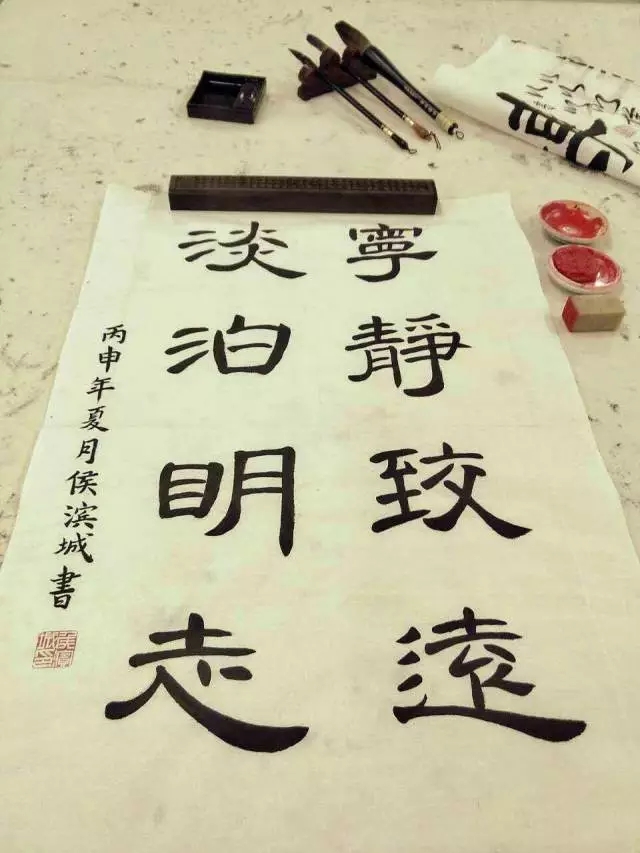 寧靜致遠
淡泊明志
丙申年夏月侯滨城書